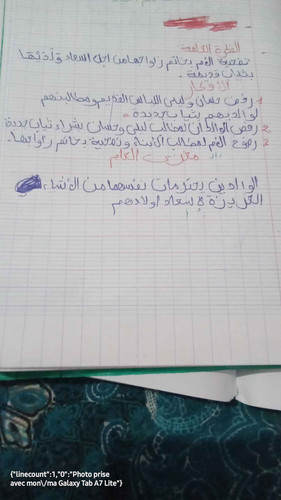 الفكرة العامة
تضحية الأم بخاتم زواجها من أجل اسعاد ولديها
بثياب قديمة.
الأفكار
1 رفض حسان وليلى اللباس القديم ومطالبتهم
لوالديهم بثياب جديدة.
2 رفض الوالدان لمطالب ليلى وحسان بشراء ثياب جديدة
3 رضوخ الأم لمطالب أبنائها وتضحية بخاتم زواجها.
مغزى العام
الوالدين يحرمان نفسهما من الأشياء
العزيزة لإسعاد أولادهم
{"linecount":1,"0":"Photo prise
avec mon\/ma Galaxy Tab A7 Lite"}